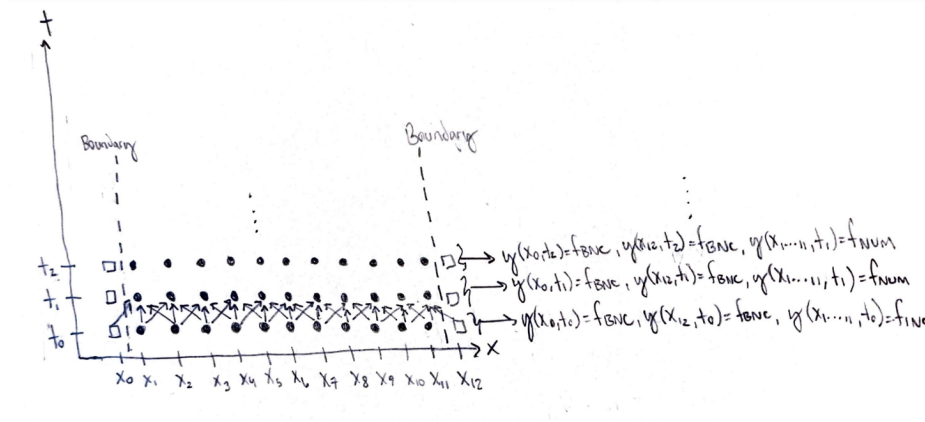 t
Boundary
Boundary
t₂ y(x₀,t₂)=fBNC, y(x₁₂,t₂)=fBNC, y(x₁...₁₁,t₁)=fNUM
t₁ y(x₀,t₁)=fBNC, y(x₁₂,t₁)=fBNC, y(x₁...₁₁,t₁)=fNUM
t₀ y(x₀,t₀)=fBNC, y(x₁₂,t₀)=fBNC, y(x₁...₁₁,t₀)=fINC
x
x₀ x₁ x₂ x₃ x₄ x₅ x₆ x₇ x₈ x₉ x₁₀ x₁₁ x₁₂